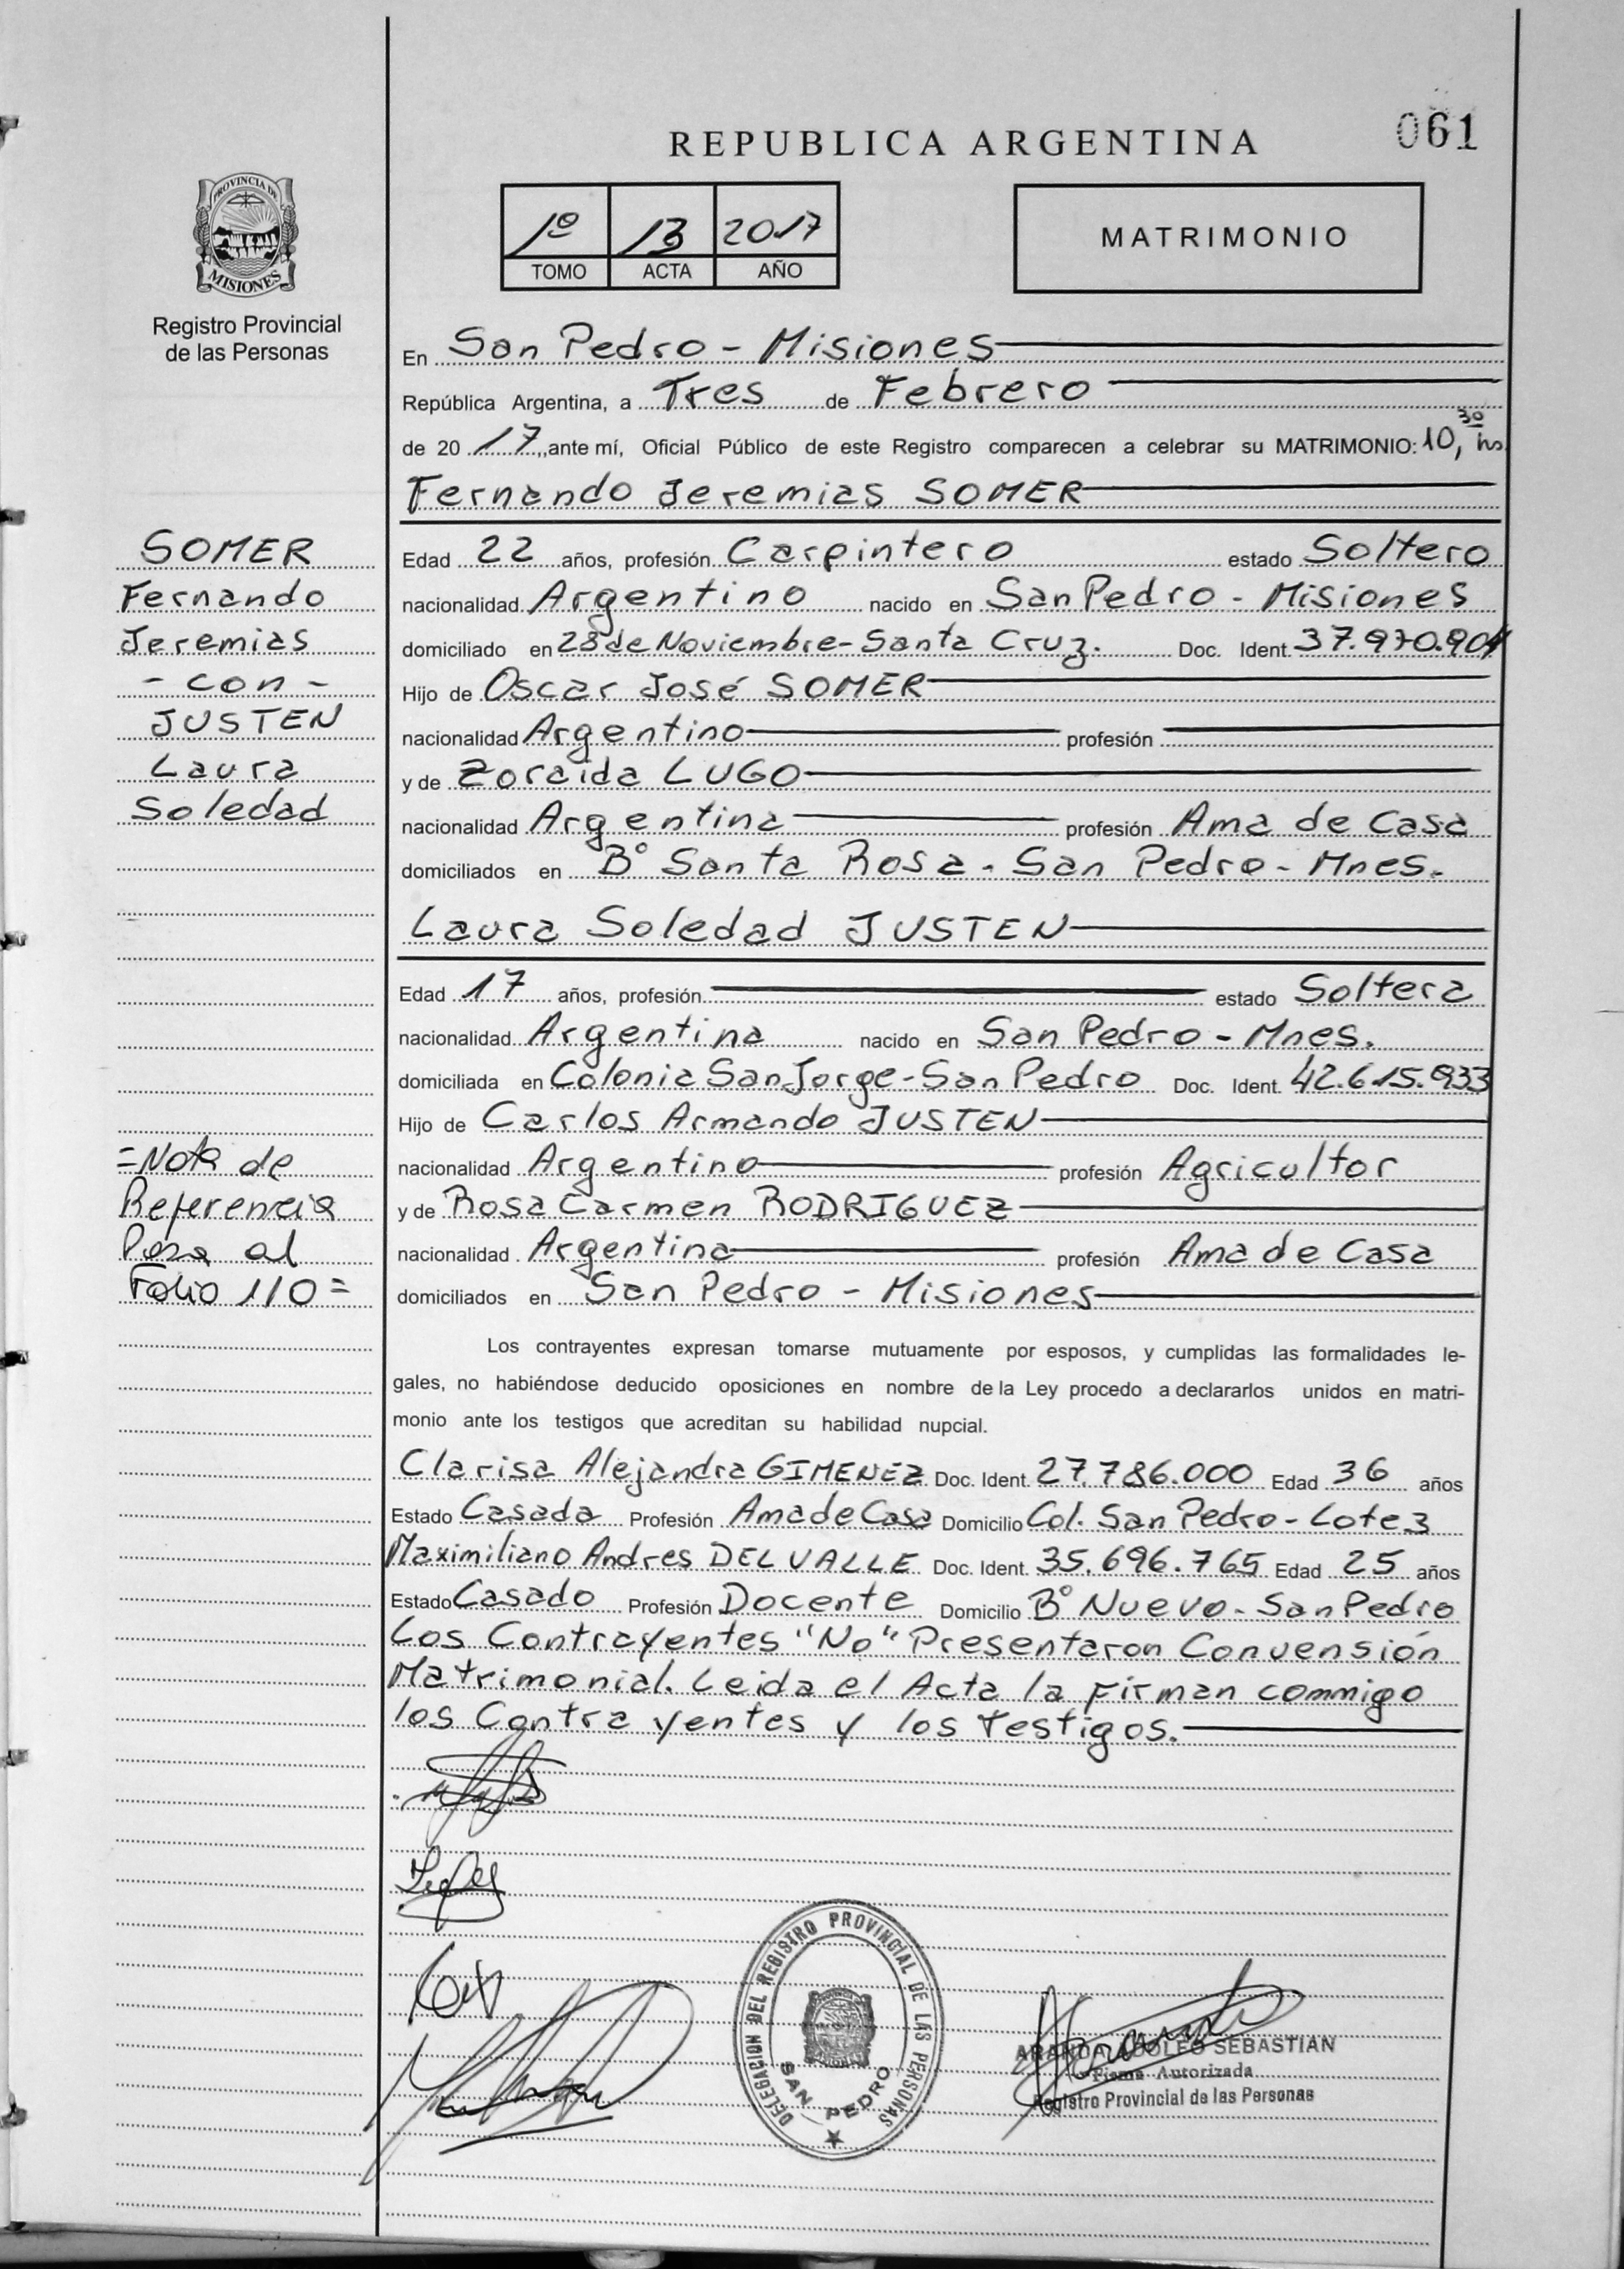 061
REPUBLICA ARGENTINA
1º 13 2017
TOMO ACTA AÑO
MATRIMONIO
PROVINCIA DE
MISIONES
Registro Provincial
de las Personas
En San Pedro - Misiones
República Argentina, a Tres de Febrero
de 20 17, ante mí, Oficial Público de este Registro comparecen a celebrar su MATRIMONIO: 10,30 hs
Fernando Jeremias SOMER
Edad 22 años, profesión Carpintero estado Soltero
nacionalidad Argentino nacido en San Pedro - Misiones
domiciliado en 28 de Noviembre - Santa Cruz. Doc. Ident. 37.970.901
Hijo de Oscar José SOMER
nacionalidad Argentino profesión
y de Zoraida LUGO
nacionalidad Argentina profesión Ama de Casa
domiciliados en Bº Santa Rosa - San Pedro - Mnes.
Laura Soledad JUSTEN
Edad 17 años, profesión estado Soltera
nacionalidad Argentina nacido en San Pedro - Mnes.
domiciliada en Colonia San Jorge - San Pedro Doc. Ident. 42.615.933
Hijo de Carlos Armando JUSTEN
nacionalidad Argentino profesión Agricultor
y de Rosa Carmen RODRIGUEZ
nacionalidad Argentina profesión Ama de Casa
domiciliados en San Pedro - Misiones
SOMER
Fernando
Jeremias
- con -
JUSTEN
Laura
Soledad
=Nota de
Referencia
Pasa al
Folio 110=
Los contrayentes expresan tomarse mutuamente por esposos, y cumplidas las formalidades le-
gales, no habiéndose deducido oposiciones en nombre de la Ley procedo a declararlos unidos en matri-
monio ante los testigos que acreditan su habilidad nupcial.
Clarisa Alejandra GIMENEZ Doc. Ident. 27.786.000 Edad 36 años
Estado Casada Profesión Ama de Casa Domicilio Col. San Pedro - Lote 3
Maximiliano Andres DEL VALLE Doc. Ident. 35.696.765 Edad 25 años
Estado Casado Profesión Docente Domicilio Bº Nuevo - San Pedro
Los Contrayentes "No" Presentaron Convensión
Matrimonial. Leida el Acta la Firman commigo
los Contrayentes y los Testigos.
DELEGACION DEL REGISTRO PROVINCIAL DE LAS PERSONAS
SAN PEDRO
ARANDA ADOLFO SEBASTIAN
Firma Autorizada
Registro Provincial de las Personas